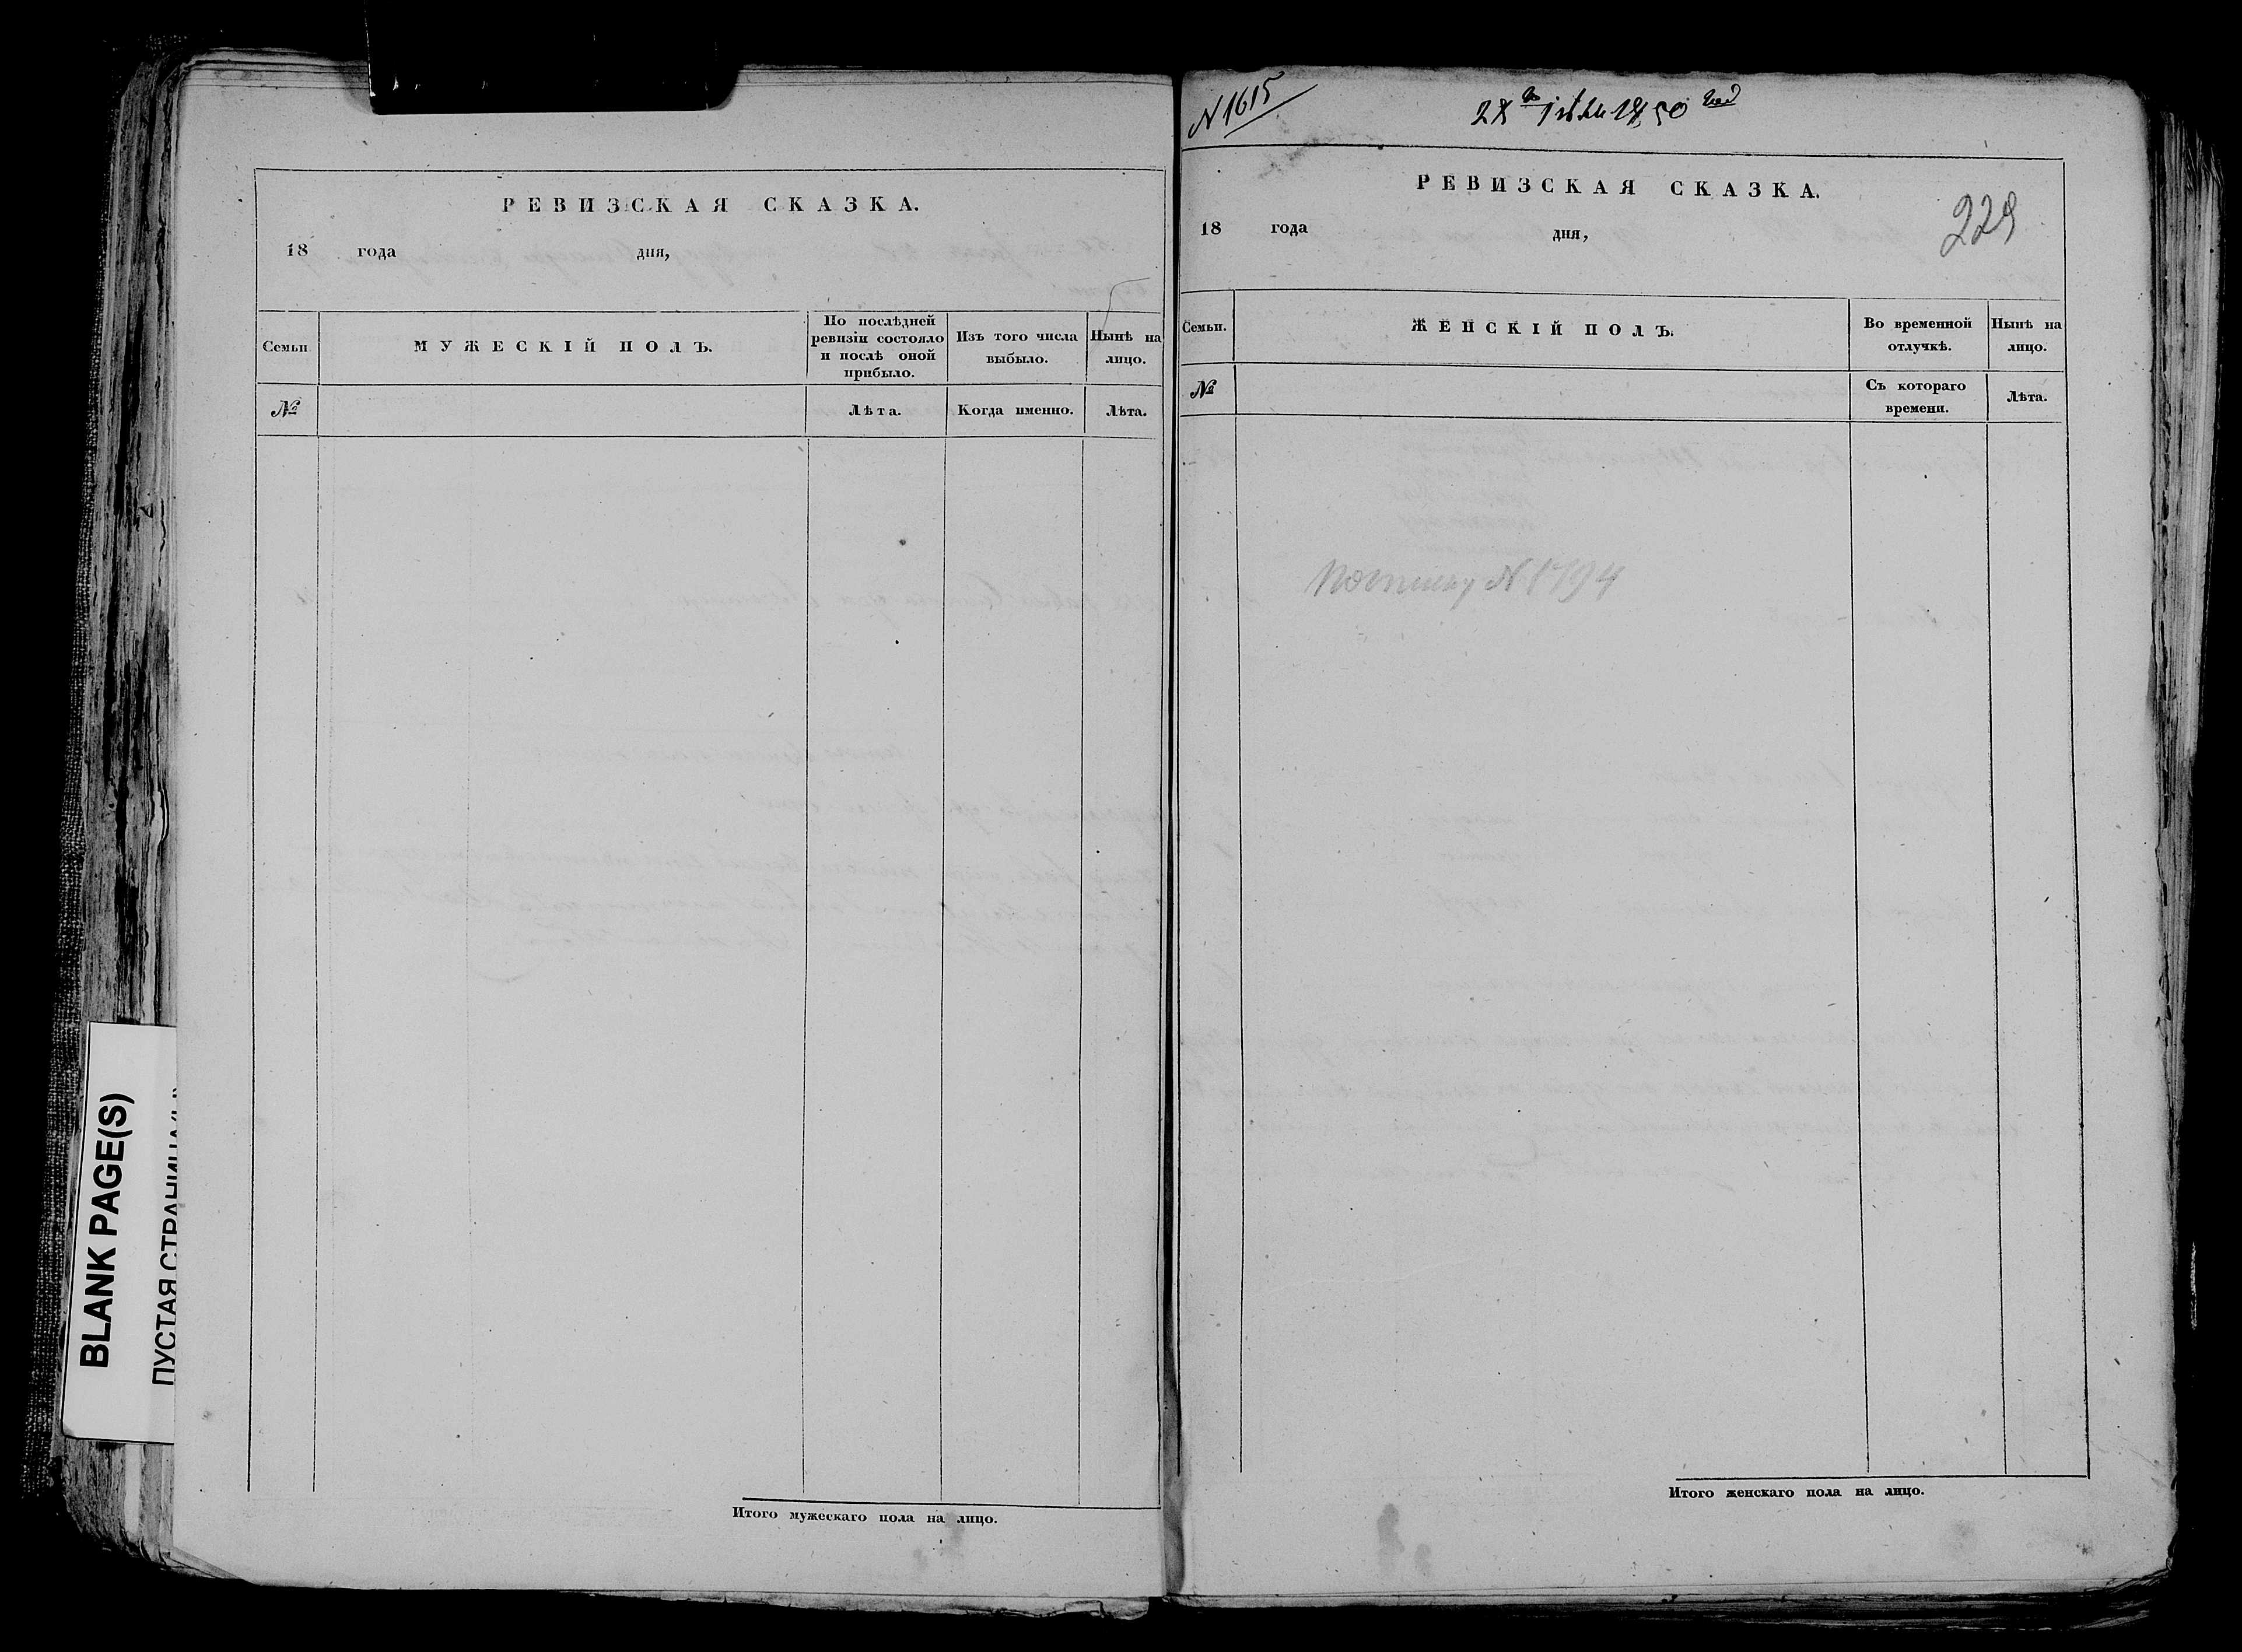 РЕВИЗСКАЯ СКАЗКА.
18 года дня,
Семьи
МУЖЕСКІЙ ПОЛЪ.
По послѣдней
ревизіи состояло
и послѣ оной
прибыло.
Изъ того числа
выбыло.
Нынѣ на
лицо.
№
Лѣта.
Когда именно.
Лѣта.
Итого мужескаго пола на лицо.
BLANK PAGE(S)
ПУСТАЯ СТРАНИЦА
N 1615
28 1850 год
РЕВИЗСКАЯ СКАЗКА.
229
18 года дня,
Семьи.
ЖЕНСКІЙ ПОЛЪ.
Во временной
отлучкѣ.
Нынѣ на
лицо.
№
Съ котораго
времени.
Лѣта.
N 1794
Итого женскаго пола на лицо.